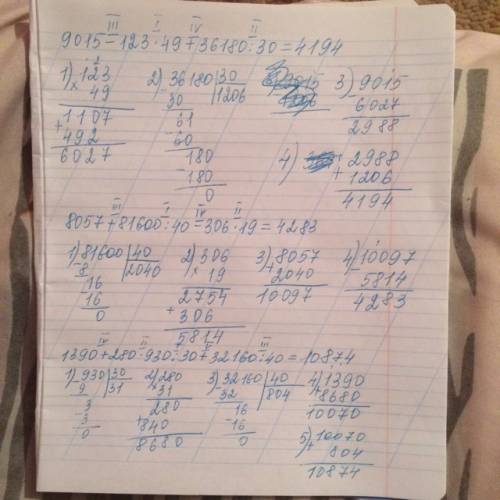 III I IV II
9015 − 123 · 49 + 36180 : 30 = 4194
1) 123 2) 36180 | 30 3) 9015
× 49 − 30 | 1206 − 6027
1107 61 2988
+ 492 − 60 4) 2988
6027 180 + 1206
− 180 4194
0
III I IV II
8057 + 81600 : 40 − 306 · 19 = 4283
1) 81600 | 40 2) 306 3) 8057 4) 10097
− 8 | 2040 × 19 + 2040 − 5814
16 2754 10097 4283
16 + 306
0 5814
IV II I V III
1390 + 280 · 930 : 30 + 32160 : 40 = 10874
1) 930 | 30 2) 280 3) 32160 | 40 4) 1390
9 | 31 × 31 − 32 | 804 + 8680
3 280 16 10070
− 3 + 840 − 16 5) 10070
0 8680 0 + 804
10874